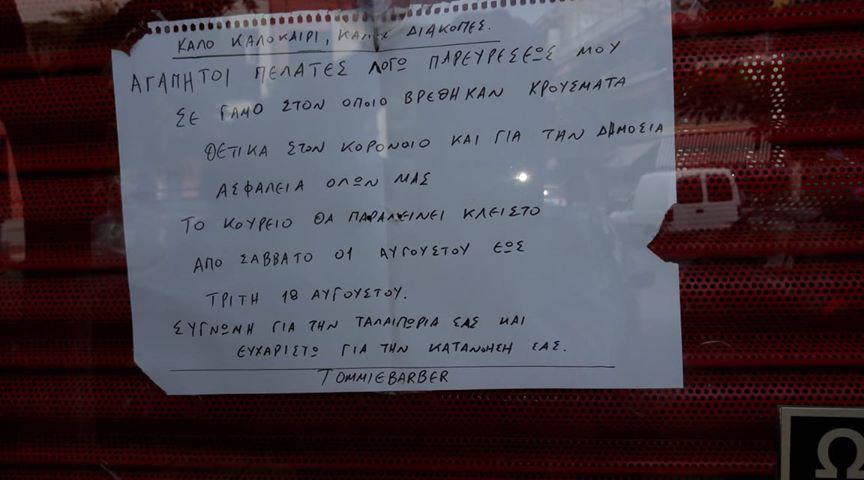 ΚΑΛΟ ΚΑΛΟΚΑΙΡΙ, ΚΑΛΕΣ ΔΙΑΚΟΠΕΣ.
ΑΓΑΠΗΤΟΙ ΠΕΛΑΤΕΣ ΛΟΓΩ ΠΑΡΕΥΡΕΣΕΩΣ ΜΟΥ
ΣΕ ΓΑΜΟ ΣΤΟΝ ΟΠΟΙΟ ΒΡΕΘΗΚΑΝ ΚΡΟΥΣΜΑΤΑ
ΘΕΤΙΚΑ ΣΤΟΝ ΚΟΡΟΝΟΙΟ ΚΑΙ ΓΙΑ ΤΗΝ ΔΗΜΟΣΙΑ
ΑΣΦΑΛΕΙΑ ΟΛΩΝ ΜΑΣ
ΤΟ ΚΟΥΡΕΙΟ ΘΑ ΠΑΡΑΜΕΙΝΕΙ ΚΛΕΙΣΤΟ
ΑΠΟ ΣΑΒΒΑΤΟ 01 ΑΥΓΟΥΣΤΟΥ ΕΩΣ
ΤΡΙΤΗ 18 ΑΥΓΟΥΣΤΟΥ.
ΣΥΓΝΩΜΗ ΓΙΑ ΤΗΝ ΤΑΛΑΙΠΩΡΙΑ ΣΑΣ ΚΑΙ
ΕΥΧΑΡΙΣΤΩ ΓΙΑ ΤΗΝ ΚΑΤΑΝΟΗΣΗ ΣΑΣ.
TOMMIEBARBER
Ω